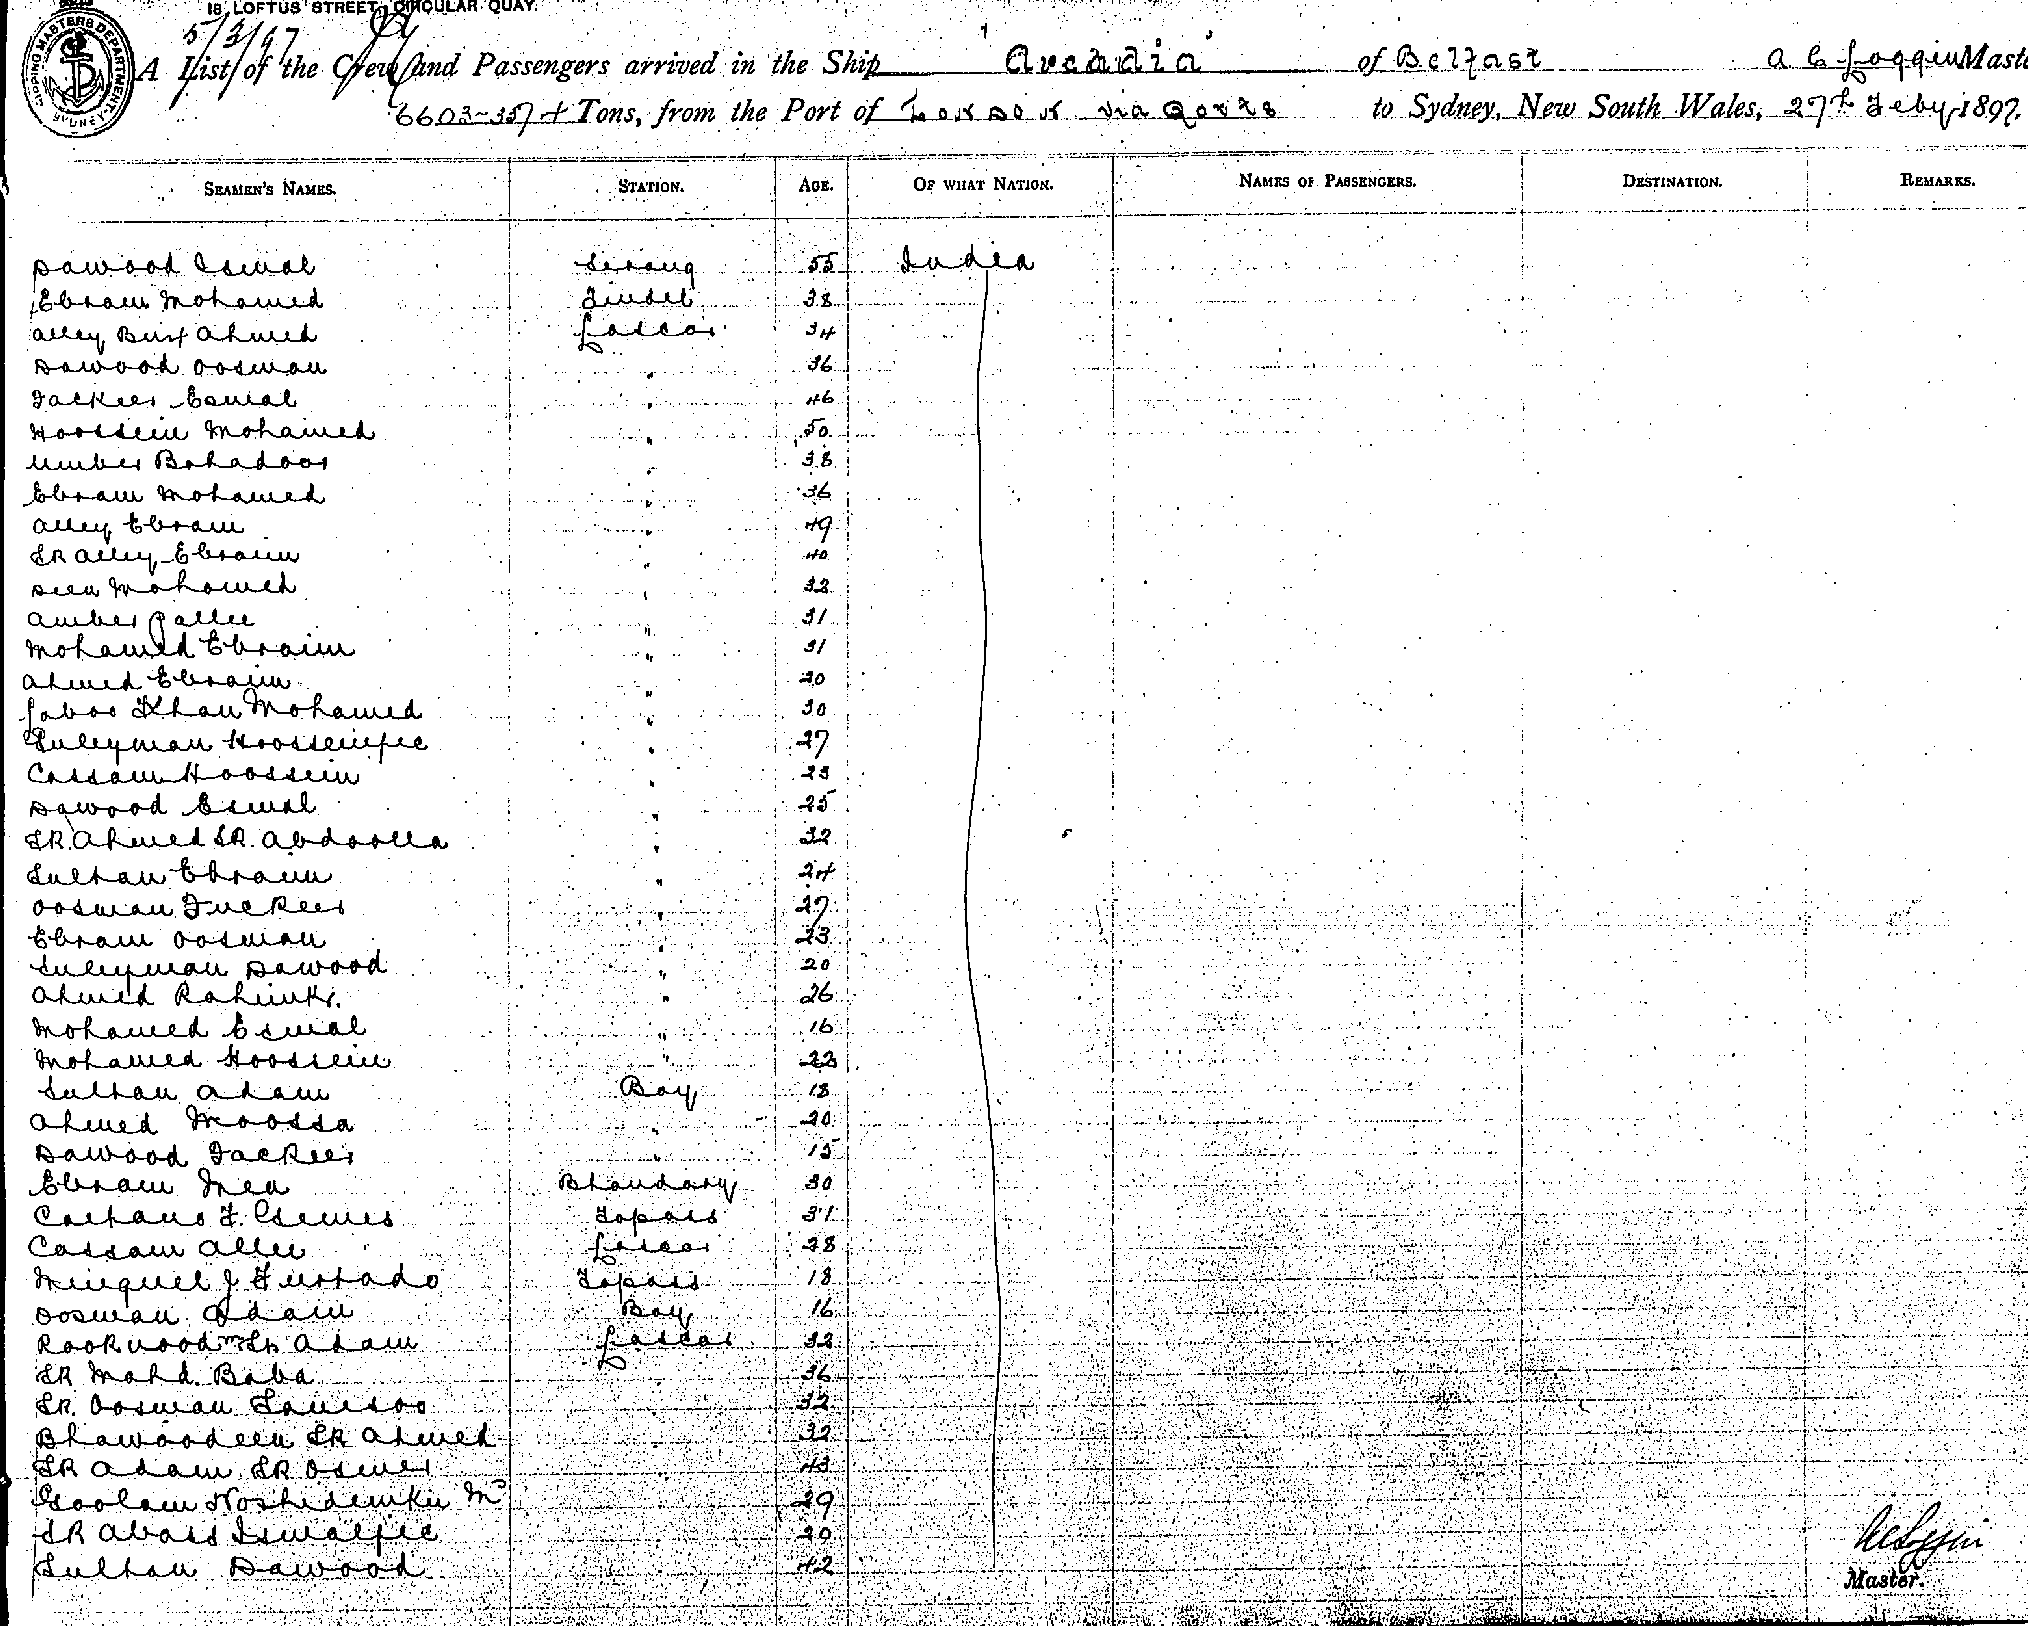 18, LOFTUS STREET, CIRCULAR QUAY.
SHIPPING MASTERS DEPARTMENT SYDNEY
5/3/97
A List of the Crew and Passengers arrived in the Ship "Arcadia" of Belfast A C Loggin Master
6603-357 Tons, from the Port of London via Ports to Sydney, New South Wales, 27th Feby 1897.
SEAMEN'S NAMES. STATION. AGE. OF WHAT NATION. NAMES OF PASSENGERS. DESTINATION. REMARKS.
Dawood Esmal Serang 55 India
Ebram Mohamed Tindel 38
Alley Bux Ahmed Lascar 34
Dawood Oosman " 36
Fackeer Esmal " 46
Hoossein Mohamed " 50
Umber Bahadoor " 38
Ebram Mohamed " 36
Alley Ebram " 49
SK Alley Ebraim " 40
Deen Mohamed " 32
Amber Pallee " 31
Mohamed Ebraim " 31
Ahmed Ebraim " 20
Khan Mohamed " 30
Suleyman Hoosseinjee " 27
Cassam Hoossein " 23
Dawood Esmal " 25
SK. Ahmed SK. Abdoolla " 32
Sultan Ebraim " 24
Oosman Fuckeer " 27
Ebram Oosman " 23
Suleyman Dawood " 20
Ahmed " 26
Mohamed Esmal " 16
Mohamed Hoossein " 22
Sultan Adam Boy 18
Ahmed Moossa " 20
Dawood Fackeer " 15
Ebram Mea Bhandary 30
Caetano F. Topass 31
Cassam Allee Lascar 28
Minguel J Furtado Topass 18
Oosman Adam Boy 16
Adam Lascar 32
SK Mahd. Baba 36
SK. Oosman 32
Bhawoodeen SK Ahmed 32
SK Adam SK Osmer 43
Goolam 29
SK Abass Ismaljee 20
Sultan Dawood 42
A C Loggin
Master.